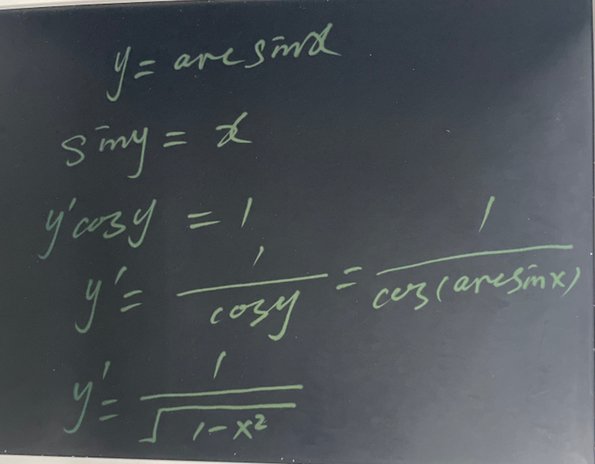 y = arcsinx
siny = x
y'cosy = 1
y' = 1/cosy = 1/cos(arcsinx)
y' = 1/√(1-x²)